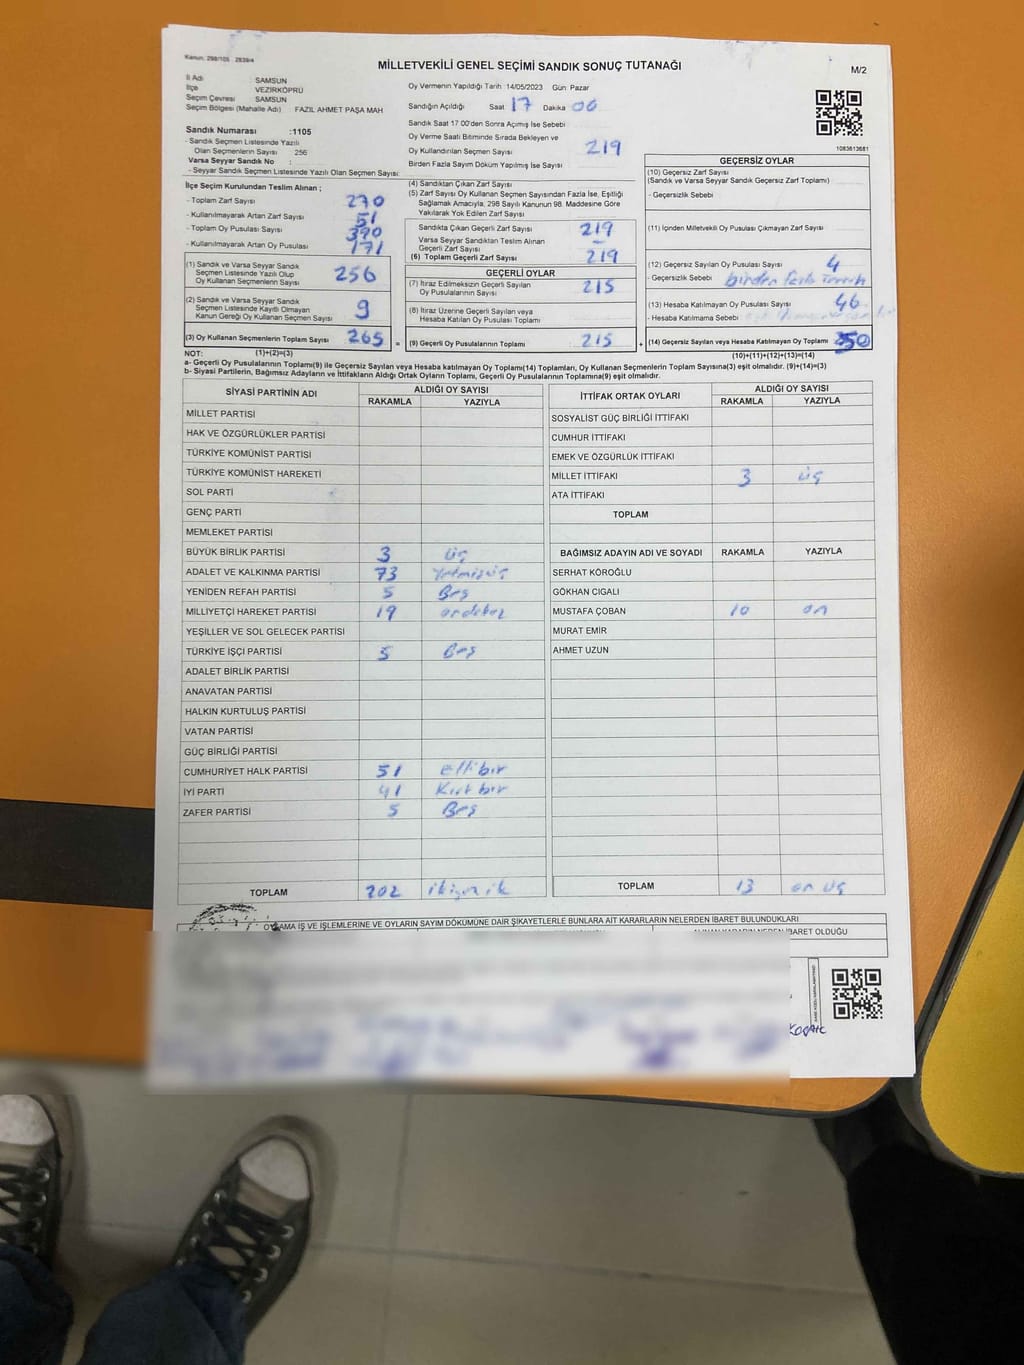 Kanun: 298/105 2839/4
MİLLETVEKİLİ GENEL SEÇİMİ SANDIK SONUÇ TUTANAĞI
M/2
İl Adı SAMSUN
İlçe VEZİRKÖPRÜ
Seçim Çevresi SAMSUN
Seçim Bölgesi (Mahalle Adı) FAZIL AHMET PAŞA MAH
Sandık Numarası :1105
- Sandık Seçmen Listesinde Yazılı
Olan Seçmenlerin Sayısı 256
Varsa Seyyar Sandık No :
- Seyyar Sandık Seçmen Listesinde Yazılı Olan Seçmen Sayısı:
Oy Vermenin Yapıldığı Tarih :14/05/2023 Gün :Pazar
Sandığın Açıldığı Saat 17 Dakika 00
Sandık Saat 17:00'den Sonra Açılmış İse Sebebi
Oy Verme Saati Bitiminde Sırada Bekleyen ve
Oy Kullandırılan Seçmen Sayısı 219
Birden Fazla Sayım Döküm Yapılmış İse Sayısı
1083613681
İlçe Seçim Kurulundan Teslim Alınan ;
- Toplam Zarf Sayısı 270
- Kullanılmayarak Artan Zarf Sayısı 51
- Toplam Oy Pusulası Sayısı 390
- Kullanılmayarak Artan Oy Pusulası 171
(1) Sandık ve Varsa Seyyar Sandık
Seçmen Listesinde Yazılı Olup
Oy Kullanan Seçmenlerin Sayısı 256
(2) Sandık ve Varsa Seyyar Sandık
Seçmen Listesinde Kayıtlı Olmayan
Kanun Gereği Oy Kullanan Seçmen Sayısı 9
(3) Oy Kullanan Seçmenlerin Toplam Sayısı 265
(4) Sandıktan Çıkan Zarf Sayısı
(5) Zarf Sayısı Oy Kullanan Seçmen Sayısından Fazla İse, Eşitliği
Sağlamak Amacıyla, 298 Sayılı Kanunun 98. Maddesine Göre
Yakılarak Yok Edilen Zarf Sayısı
Sandıkta Çıkan Geçerli Zarf Sayısı 219
Varsa Seyyar Sandıktan Teslim Alınan
Geçerli Zarf Sayısı -
(6) Toplam Geçerli Zarf Sayısı 219
GEÇERLİ OYLAR
(7) İtiraz Edilmeksizin Geçerli Sayılan
Oy Pusulalarının Sayısı 215
(8) İtiraz Üzerine Geçerli Sayılan veya
Hesaba Katılan Oy Pusulası Toplamı
= (9) Geçerli Oy Pusulalarının Toplamı 215 +
GEÇERSİZ OYLAR
(10) Geçersiz Zarf Sayısı
(Sandık ve Varsa Seyyar Sandık Geçersiz Zarf Toplamı)
- Geçersizlik Sebebi
(11) İçinden Milletvekili Oy Pusulası Çıkmayan Zarf Sayısı
(12) Geçersiz Sayılan Oy Pusulası Sayısı 4
- Geçersizlik Sebebi birden fazla
(13) Hesaba Katılmayan Oy Pusulası Sayısı 46
- Hesaba Katılmama Sebebi
(14) Geçersiz Sayılan veya Hesaba Katılmayan Oy Toplamı 50
NOT: (1)+(2)=(3) (10)+(11)+(12)+(13)=(14)
a- Geçerli Oy Pusulalarının Toplamı(9) ile Geçersiz Sayılan veya Hesaba katılmayan Oy Toplamı(14) Toplamları, Oy Kullanan Seçmenlerin Toplam Sayısına(3) eşit olmalıdır. (9)+(14)=(3)
b- Siyasi Partilerin, Bağımsız Adayların ve İttifakların Aldığı Ortak Oyların Toplamı, Geçerli Oy Pusulalarının Toplamına(9) eşit olmalıdır.
SİYASİ PARTİNİN ADI ALDIĞI OY SAYISI
RAKAMLA YAZIYLA
MİLLET PARTİSİ
HAK VE ÖZGÜRLÜKLER PARTİSİ
TÜRKİYE KOMÜNİST PARTİSİ
TÜRKİYE KOMÜNİST HAREKETİ
SOL PARTİ
GENÇ PARTİ
MEMLEKET PARTİSİ
BÜYÜK BİRLİK PARTİSİ 3 üç
ADALET VE KALKINMA PARTİSİ 73 Yetmişüç
YENİDEN REFAH PARTİSİ 5 Beş
MİLLİYETÇİ HAREKET PARTİSİ 19 ondokuz
YEŞİLLER VE SOL GELECEK PARTİSİ
TÜRKİYE İŞÇİ PARTİSİ 5 Beş
ADALET BİRLİK PARTİSİ
ANAVATAN PARTİSİ
HALKIN KURTULUŞ PARTİSİ
VATAN PARTİSİ
GÜÇ BİRLİĞİ PARTİSİ
CUMHURİYET HALK PARTİSİ 51 ellibir
İYİ PARTİ 41 Kırkbir
ZAFER PARTİSİ 5 Beş
TOPLAM 202 ikiyüziki
İTTİFAK ORTAK OYLARI ALDIĞI OY SAYISI
RAKAMLA YAZIYLA
SOSYALİST GÜÇ BİRLİĞİ İTTİFAKI
CUMHUR İTTİFAKI
EMEK VE ÖZGÜRLÜK İTTİFAKI
MİLLET İTTİFAKI 3 üç
ATA İTTİFAKI
TOPLAM
BAĞIMSIZ ADAYIN ADI VE SOYADI RAKAMLA YAZIYLA
SERHAT KÖROĞLU
GÖKHAN CIGALI
MUSTAFA ÇOBAN 10 on
MURAT EMİR
AHMET UZUN
TOPLAM 13 on üç
OYLAMA İŞ VE İŞLEMLERİNE VE OYLARIN SAYIM DÖKÜMÜNE DAİR ŞİKAYETLERLE BUNLARA AİT KARARLARIN NELERDEN İBARET BULUNDUKLARI
ALINAN KARARIN NEDEN İBARET OLDUĞU